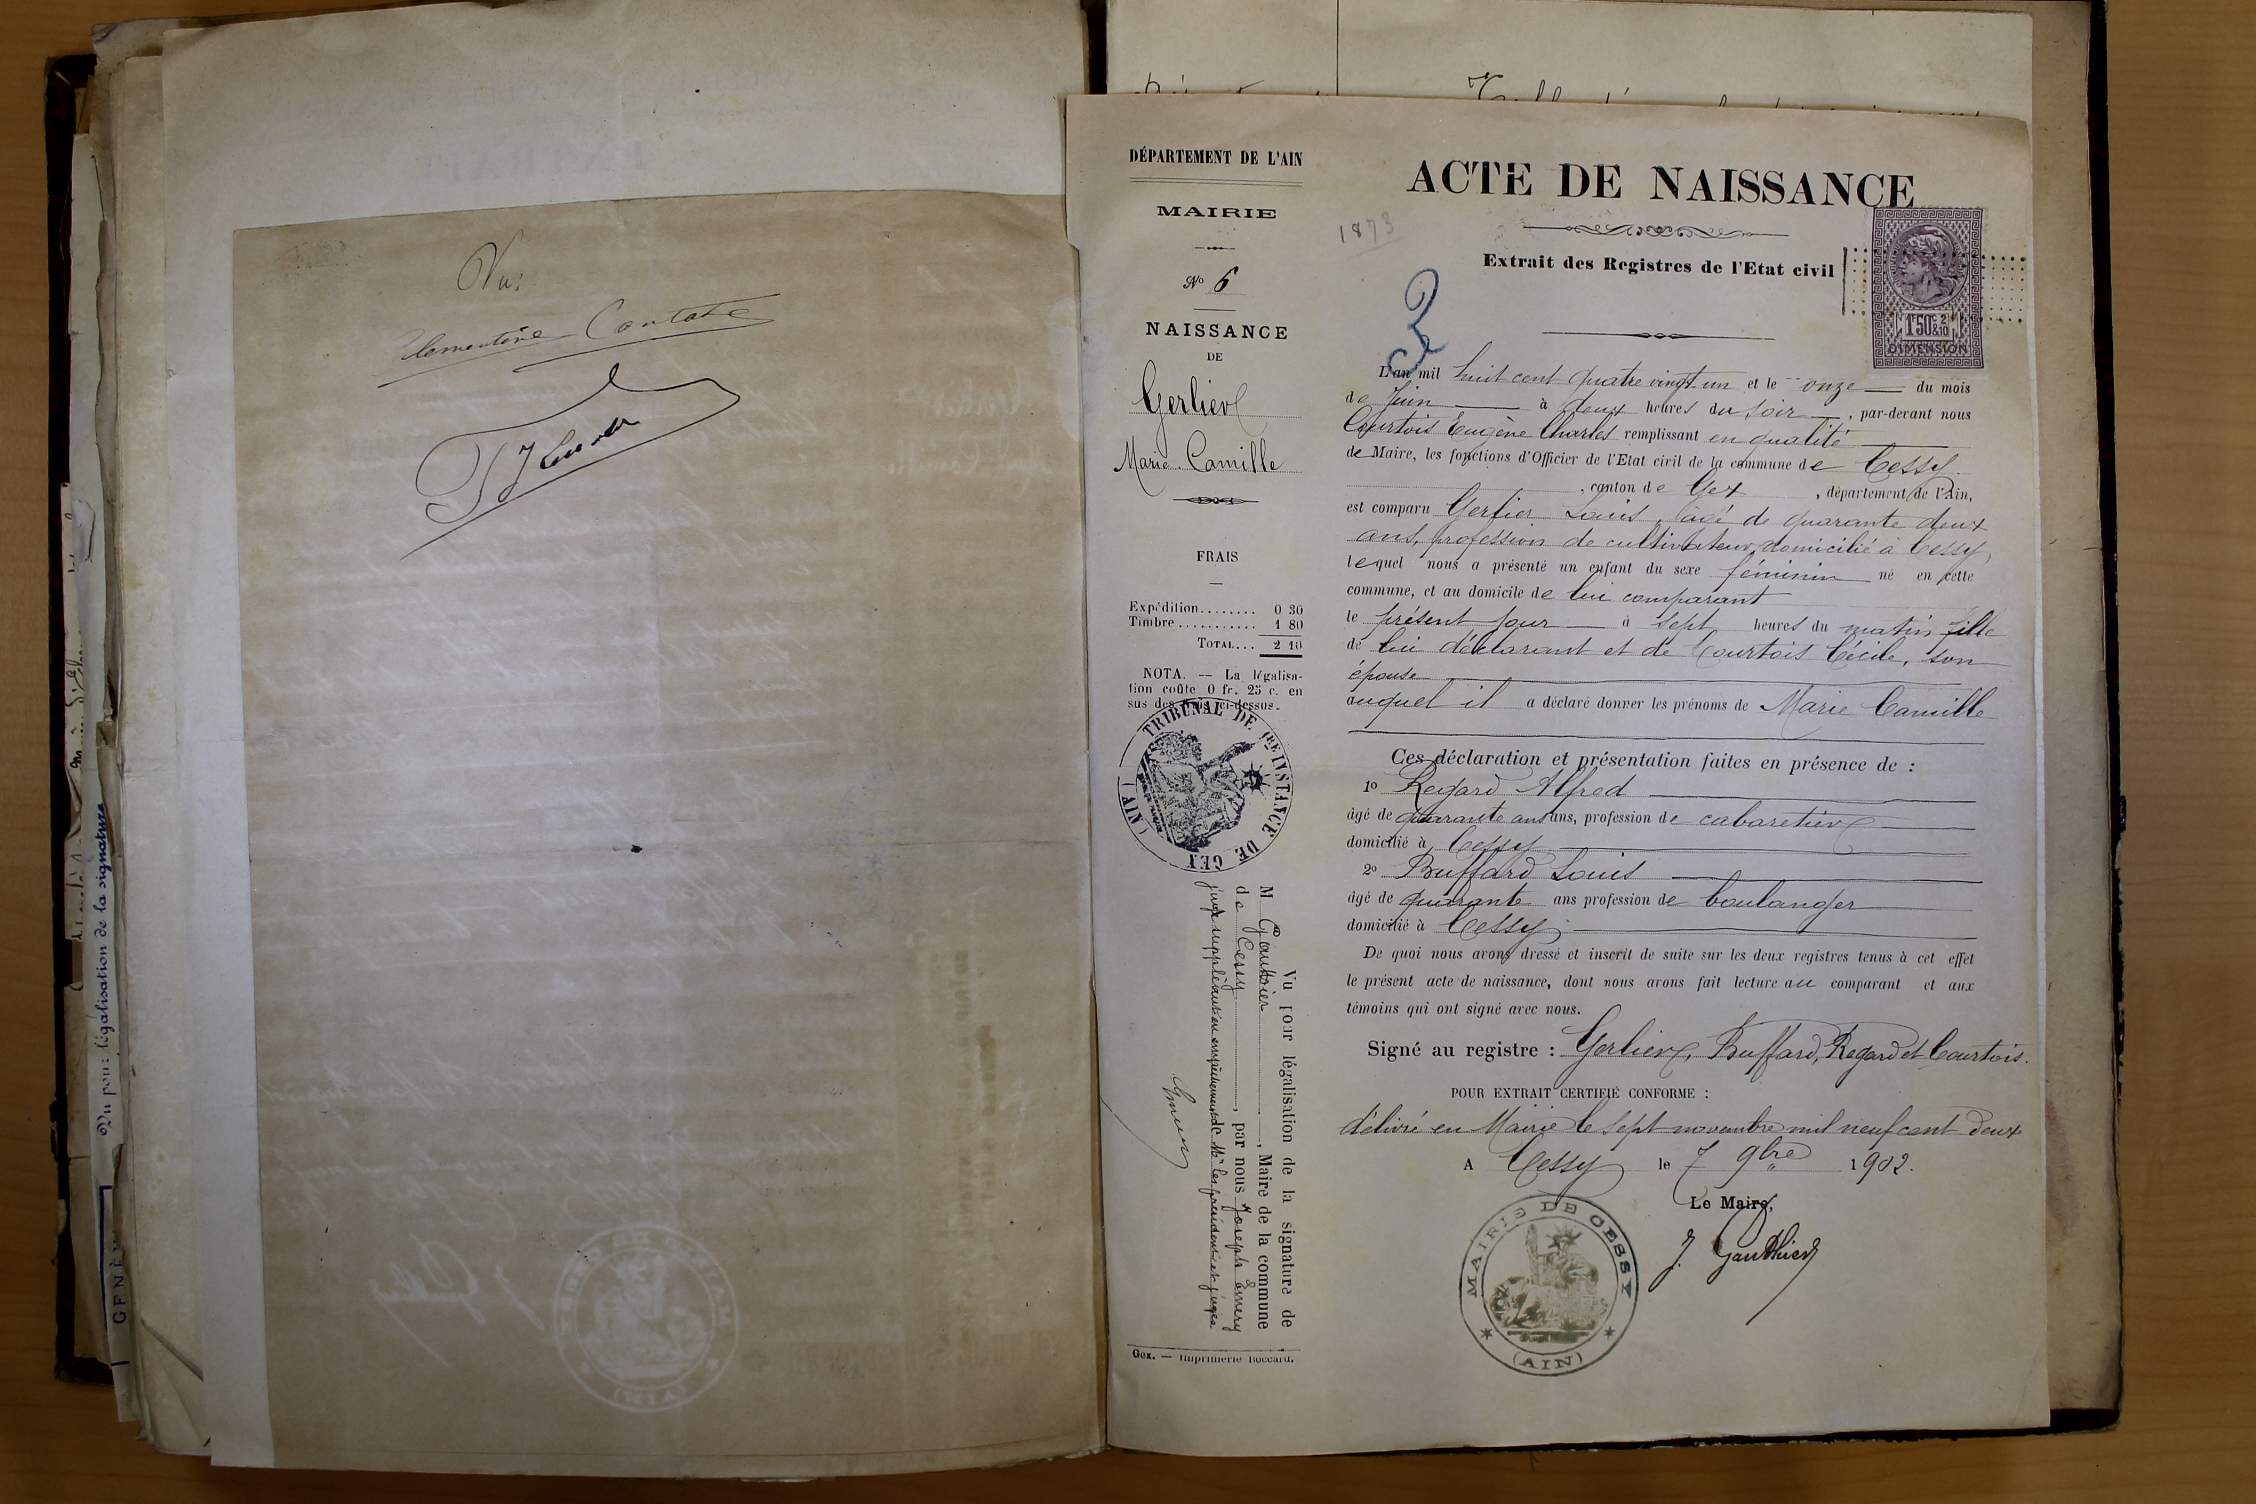 Vu:
DÉPARTEMENT DE L'AIN
MAIRIE
Nº 6
NAISSANCE
DE
Gerlier
Marie Camille
FRAIS
Expédition........ 0 30
Timbre........... 1 80
TOTAL... 2 10
NOTA. — La légalisa-
tion coûte 0 fr. 25 c. en
sus des frais ci-dessus.
TRIBUNAL DE 1RE INSTANCE DE GEX (AIN)
Vu pour légalisation de la signature de
M Gauthier, Maire de la commune
de Cessy, par nous Joseph Emery
juge suppléant en empêchement de Mrs les présidents et juges
Emery
Gex. — Imprimerie Boccard.
1873
3
ACTE DE NAISSANCE
Extrait des Registres de l'Etat civil
1F50c 2/10
DIMENSION
L'an mil huit cent quatre vingt un et le onze du mois
de Juin à deux heures du soir, par-devant nous
Courtois Eugène Charles remplissant en qualité
de Maire, les fonctions d'Officier de l'Etat civil de la commune de Cessy
, canton de Gex, département de l'Ain,
est comparu Gerlier Louis, âgé de quarante deux
ans, profession de cultivateur, domicilié à Cessy,
lequel nous a présenté un enfant du sexe féminin né en cette
commune, et au domicile de lui comparant
le présent jour à sept heures du matin fille
de lui déclarant et de Courtois Cécile, son
épouse
auquel il a déclaré donner les prénoms de Marie Camille
Ces déclaration et présentation faites en présence de :
1º Regard Alfred
âgé de quarante ans ans, profession de cabaretier
domicilié à Cessy
2º Buffard Louis
âgé de quarante ans profession de boulanger
domicilié à Cessy
De quoi nous avons dressé et inscrit de suite sur les deux registres tenus à cet effet
le présent acte de naissance, dont nous avons fait lecture au comparant et aux
témoins qui ont signé avec nous.
Signé au registre : Gerlier, Buffard, Regard et Courtois.
POUR EXTRAIT CERTIFIÉ CONFORME :
délivré en Mairie le sept novembre mil neuf cent deux
A Cessy le 7 9bre 1902.
Le Maire,
J. Gauthier
MAIRIE DE CESSY
(AIN)
Vu pour légalisation de la signature
GENÈV